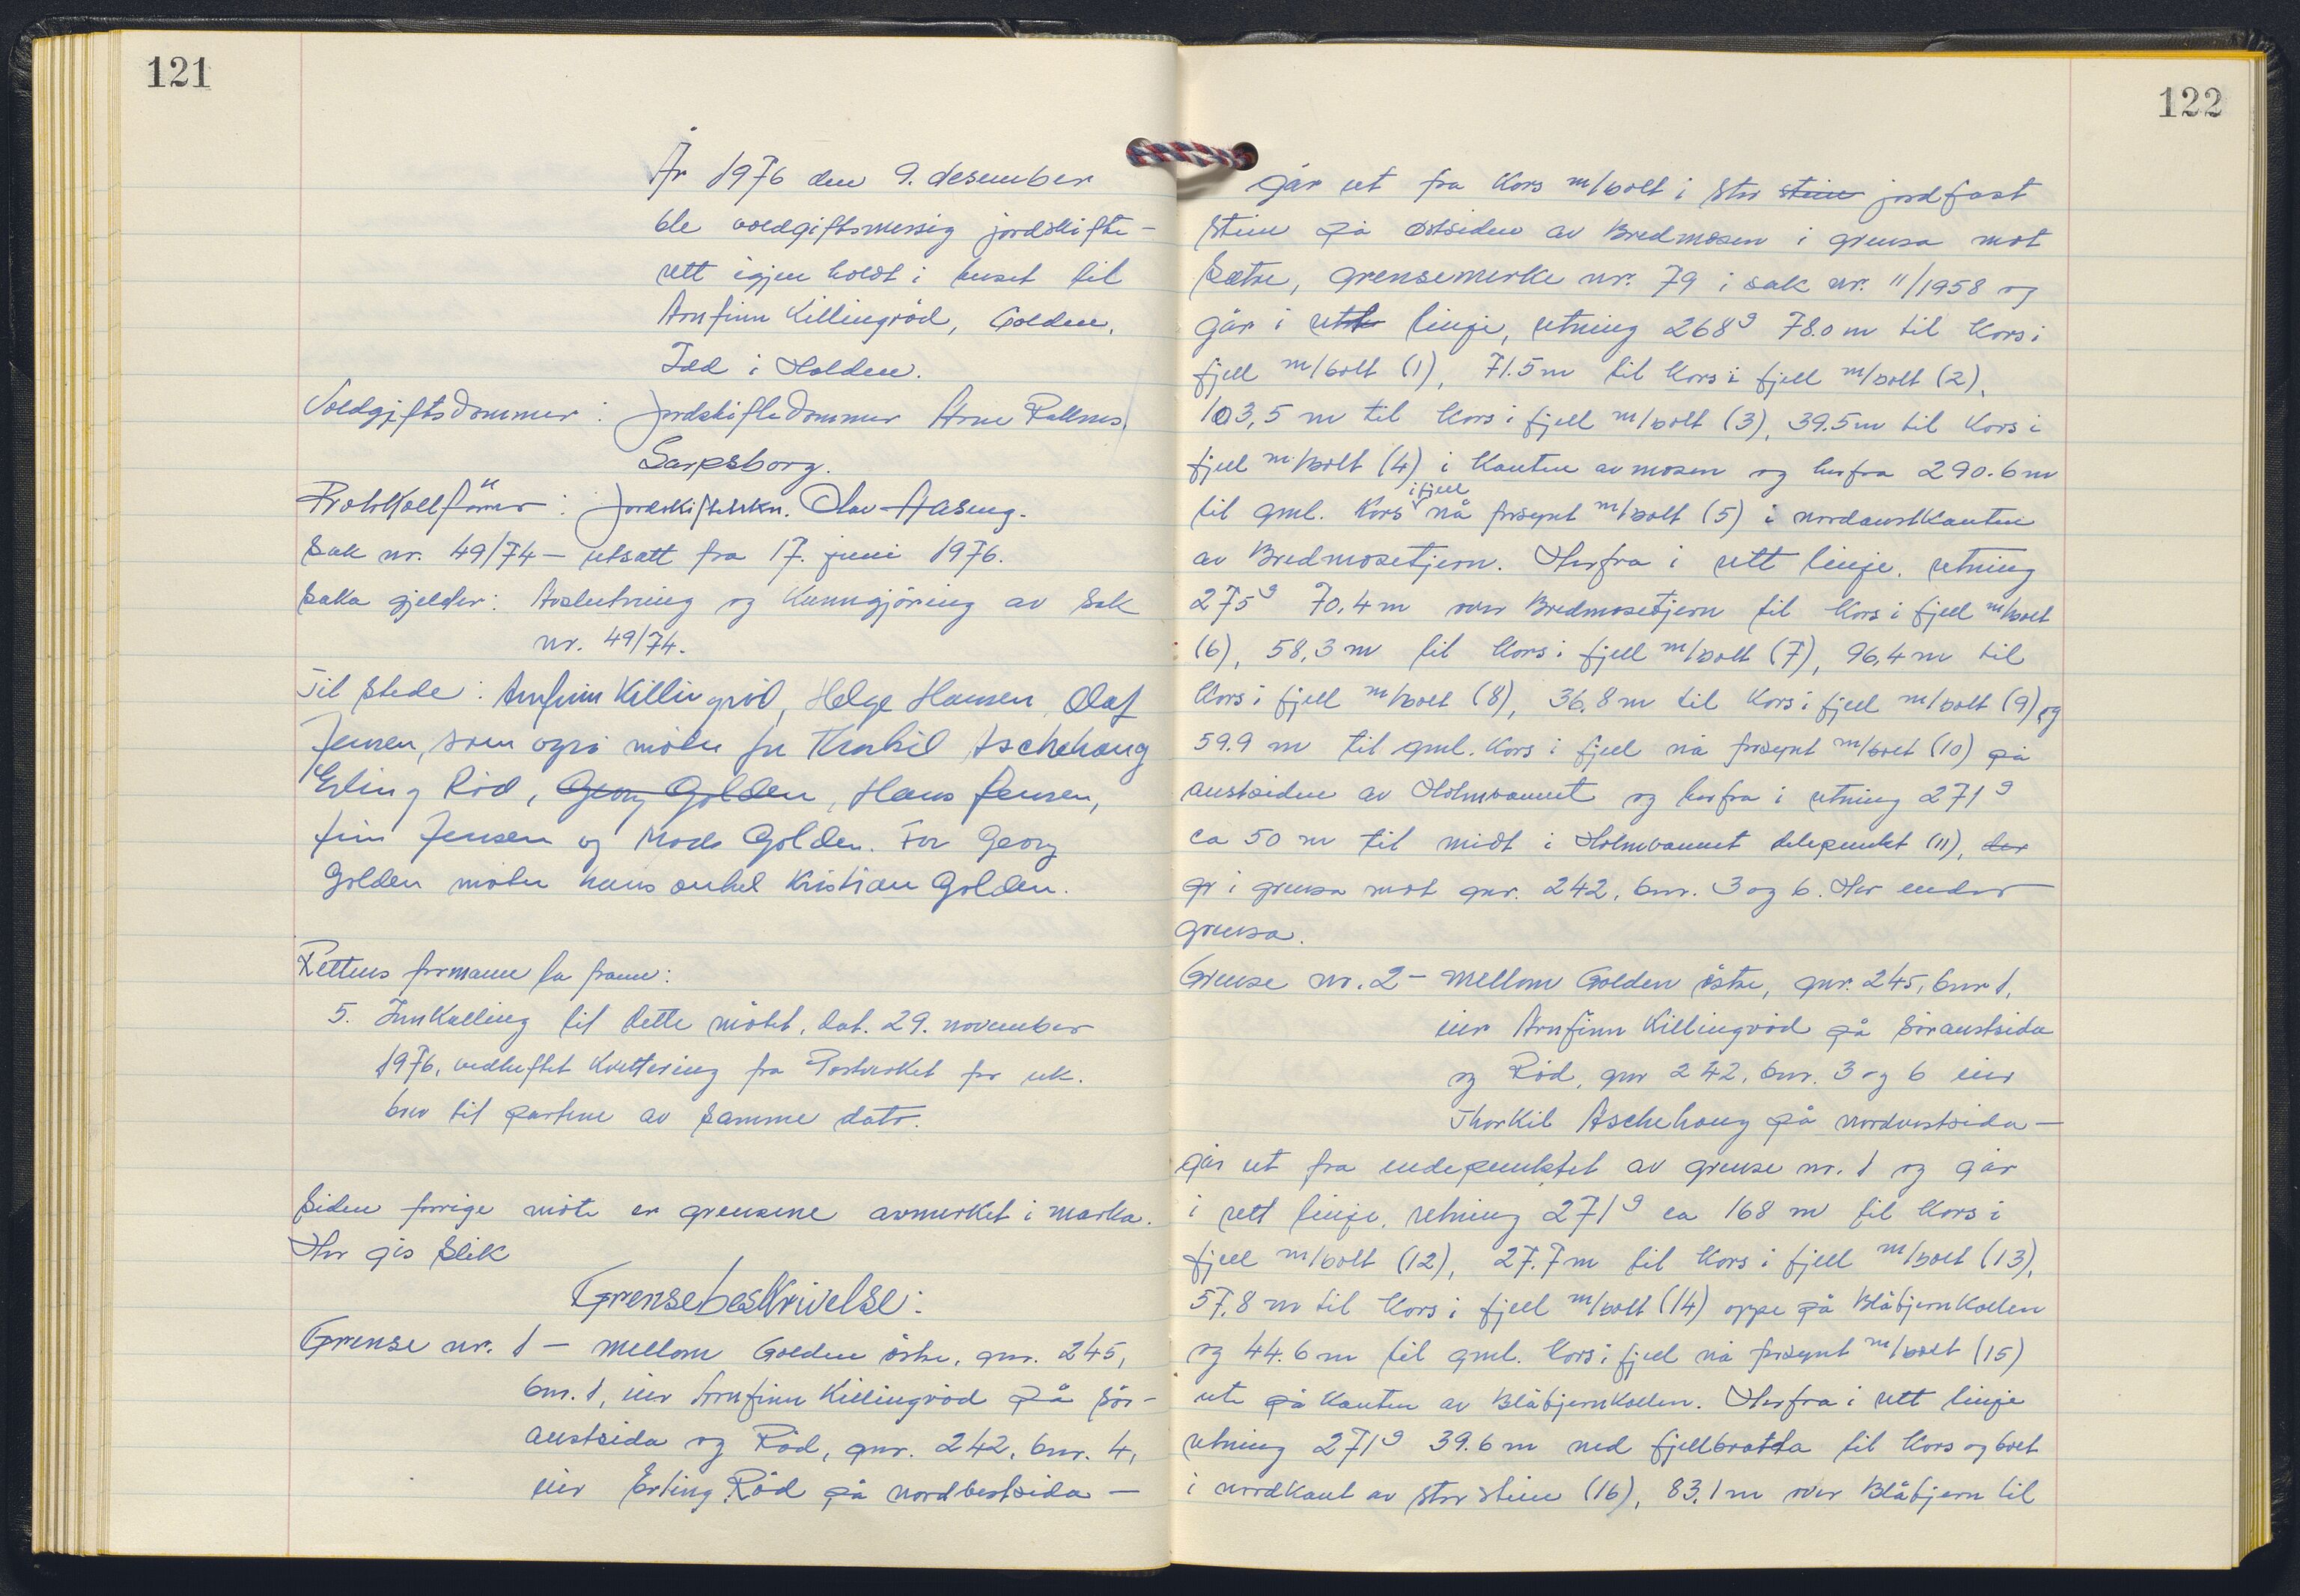 121
År 1976 den 9. desember
ble voldgiftsmessig jordskifte-
rett igjen holdt i huset til
Arnfinn Killingröd, Golden,
Idd i Halden.
Voldgiftsdommer: Jordskiftedommer Arne
Sarpsborg.
Protokollförer: Olav Aaseng.
Sak nr. 49/74 - utsatt fra 17. juni 1976.
Saka gjelder: Avslutning og Kunngjöring av sak
nr. 49/74.
Til stede: Arnfinn Killingröd, Helge Hansen, Olaf
Jensen, som også möter for Thorkil Aschehoug
Erling Röd, Georg Golden, Hans Jensen,
Jensen og Mads Golden. For Georg
Golden möter hans onkel Kristian Golden.
Rettens formann la fram:
5. Innkalling til dette mötet, dat. 29. november
1976, vedheftet kvittering fra Postverket for rek.
brev til partene av samme dato.
Siden forrige möte er grensene avmerket i marka.
Her gis slik
Grensebeskrivelse:
Grense nr. 1 - mellom Golden östre, gnr. 245,
bnr. 1, eier Arnfinn Killingröd på sör-
austsida og Röd, gnr. 242, bnr. 4,
eier Erling Röd på nordvestsida -
122
går ut fra kors m/bolt i stor stein jordfast
stein på östsiden av Bredmosen i grensa mot
Sætre, grensemerke nr. 79 i sak nr. 11/1958 og
går i rett linje, retning 268g 78.0 m til kors i
fjell m/bolt (1), 71.5 m til kors i fjell m/bolt (2),
103,5 m til kors i fjell m/bolt (3), 39.5 m til kors i
fjell m/bolt (4) i kanten av mosen og herfra 290.6 m
til gml. kors i fjell nå forsynt m/bolt (5) i nordaustkanten
av Bredmosetjern. Herfra i rett linje, retning
275g 70,4 m over Bredmosetjern til kors i fjell m/bolt
(6), 58,3 m til kors i fjell m/bolt (7), 96,4 m til
kors i fjell m/bolt (8), 36,8 m til kors i fjell m/bolt (9) og
59.9 m til gml. kors i fjell nå forsynt m/bolt (10) på
austsiden av Holmvannet og herfra i retning 271g
ca 50 m til midt i Holmvannet delepunkt (11), der
i grensa mot gnr. 242, bnr. 3 og 6. Her ender
grensa.
Grense nr. 2 - mellom Golden östre, gnr. 245, bnr 1,
eier Arnfinn Killingröd på söraustsida
og Röd, gnr 242, bnr. 3 og 6 eier
Thorkil Aschehoug på nordvestsida -
går ut fra endepunktet av grense nr. 1 og går
i rett linje, retning 271g ca 168 m til kors i
fjell m/bolt (12), 27.7 m til kors i fjell m/bolt (13),
57,8 m til kors i fjell m/bolt (14) oppe på Blåbjernkollen
og 44.6 m til gml. kors i fjell nå forsynt m/bolt (15)
ute på kanten av Blåbjernkollen. Herfra i rett linje
retning 271g 39.6 m ned fjellbratta til kors og bolt
i nordkant av stor stein (16), 83,1 m over Blåtjern til